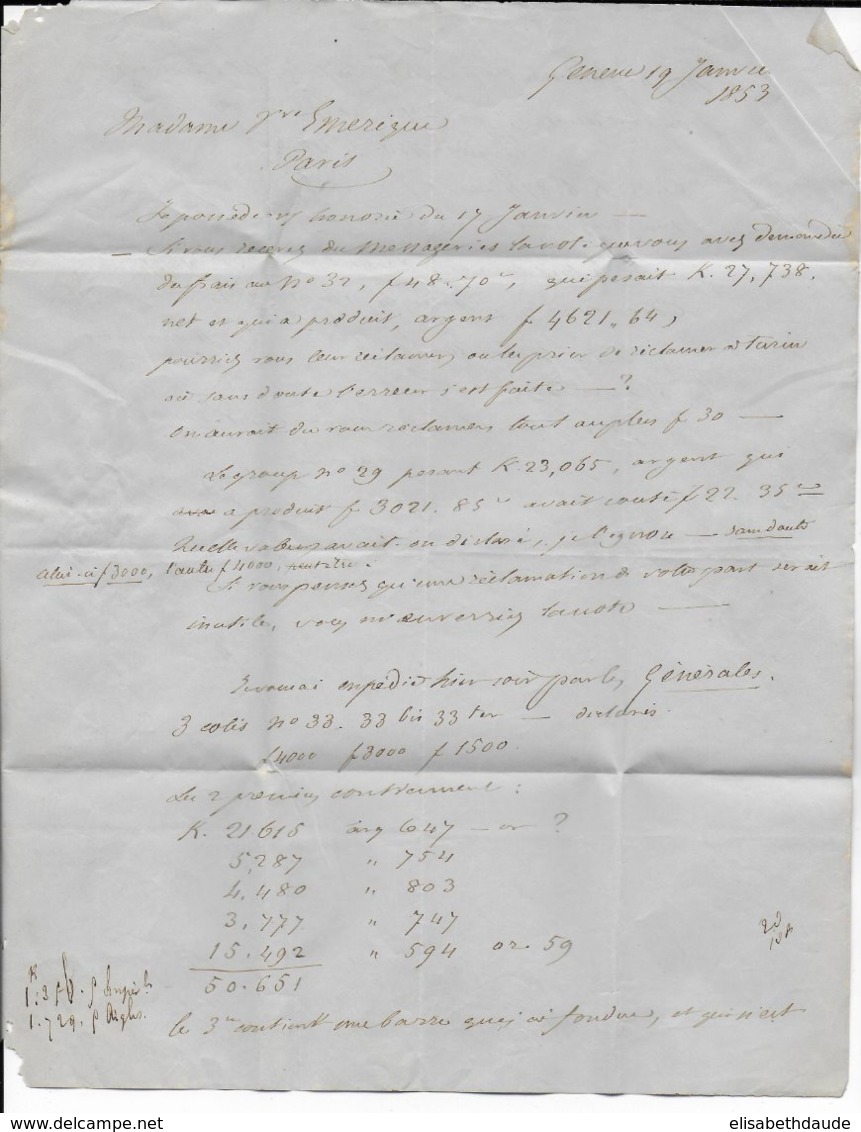 Geneve 19 Janvier
1853
Madame Vve Emerique
Paris
Je possède vos honorée du 17 Janvier —
— Si vous recevez des Messageries la note que vous avez demandée
des frais au No 32, f 48.70c, qui pesait K. 27,738,
net et qui a produit, argent f 4621,,64,
pourriez vous leur réclamer, ou les prier de réclamer à Turin
où sans doute l'erreur s'est faite — ?
On aurait du vous réclamer tout au plus f 30 —
Le group no 29 pesant K. 23,065, argent qui
a produit f 3021.85c avait couté f 22.35c
Quelle valeur avait-on déclaré, je l'ignore — sans doute
celui-ci f 3000, l'autre f 4000, peut-être.
Si vous pensez qu'une réclamation de votre part serait
inutile, vous m'enverriez la note —
Je vous ai expédié hier soir par les Générales.
3 colis No 33. 33 bis 33 ter — déclarés
f 4000 f 3000 f 1500.
Les 2 premiers contiennent :
K. 21.615 arg 647 — or ?
5,287 " 754
4,480 " 803
3,777 " 747
15.492 " 594 or. 59
50.651
K
1.729. p
le 3me contient une barre que j'ai fondue, et qui vient
elisabethdaude